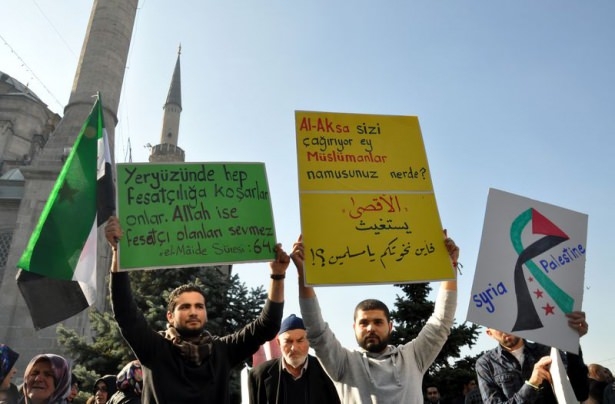 Yeryüzünde hep
fesatçılığa koşarlar
onlar. Allah ise
fesatçı olanları sevmez
el-Mâide Sûresi: 64
Al-Aksa sizi
çağırıyor ey
Müslümanlar
namusunuz nerde?
الأقصى
يستغيث
فاين نخوتكم يا مسلمين؟!؟
syria
Palestine